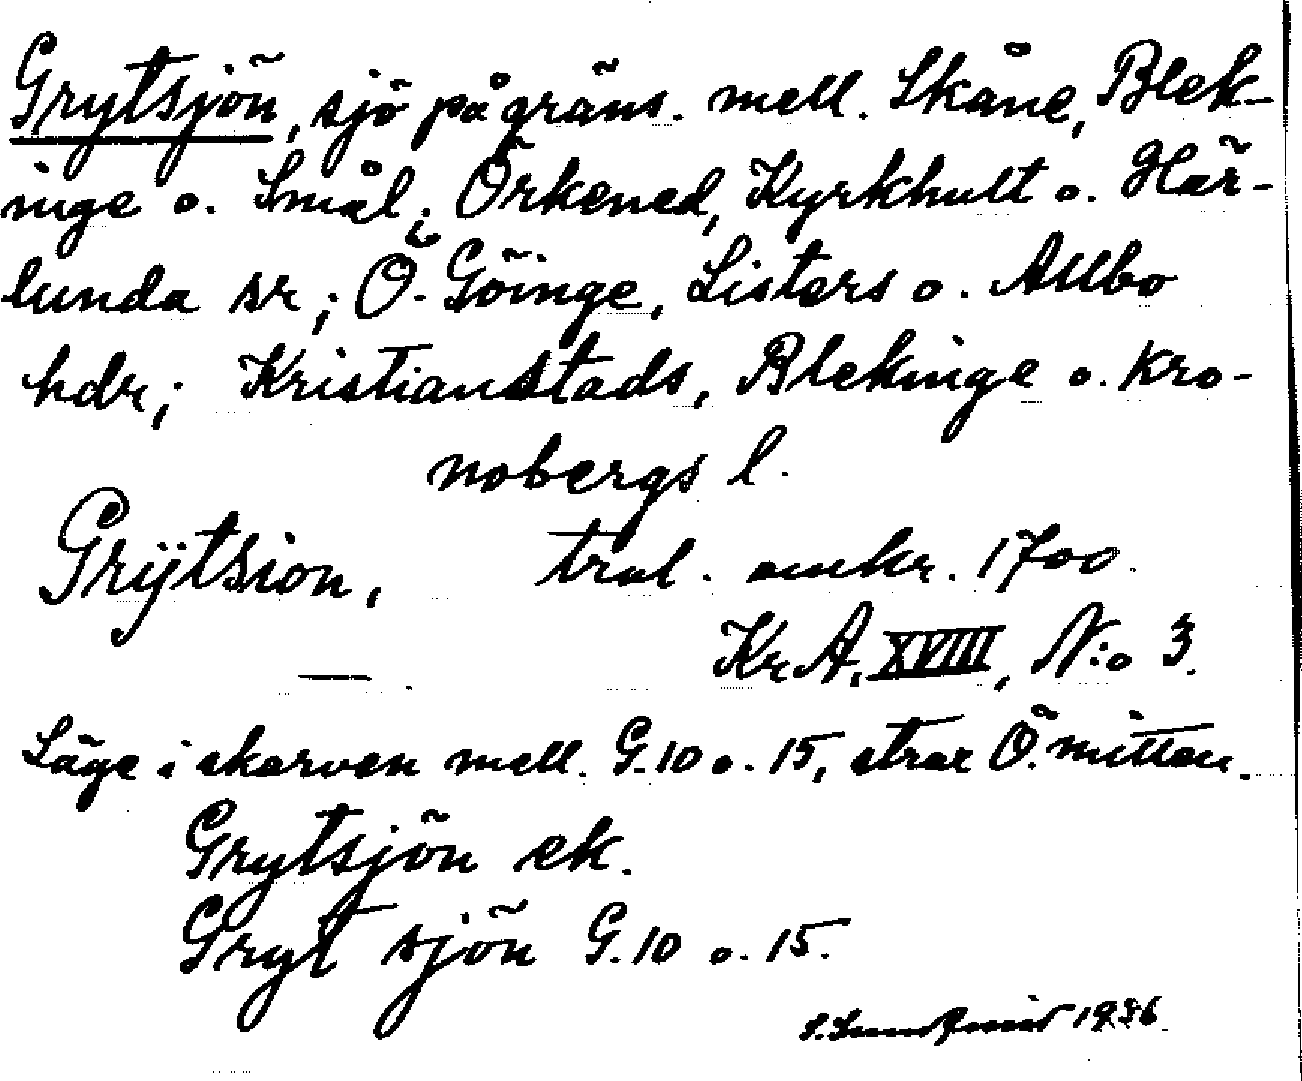 Grytsjön, sjö på gräns. mell. Skåne, Blek-
inge o. Smål.; Örkened, Kyrkhult o. Här-
lunda sr; Ö. Göinge, Listers o. Allbo
hdr; Kristianstads, Blekinge o. Kro-
nobergs l.
Grÿtsion, trol. omkr. 1700.
Kr A. XVIII, N:o 3.
Läge i skarven mell. G. 10 o. 15, strax Ö. mitten.
Grytsjön ek.
Gryt sjön G. 10 o. 15.
1936